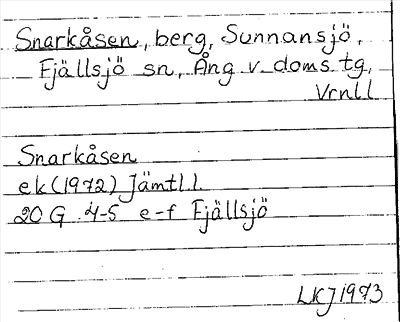 Snarkåsen, berg, Sunnansjö,
Fjällsjö sn, Ång v. doms. tg,
Vrnll
Snarkåsen
ek (1972) Jämtl. l.
20 G 4-5 e-f Fjällsjö
LKJ 1973